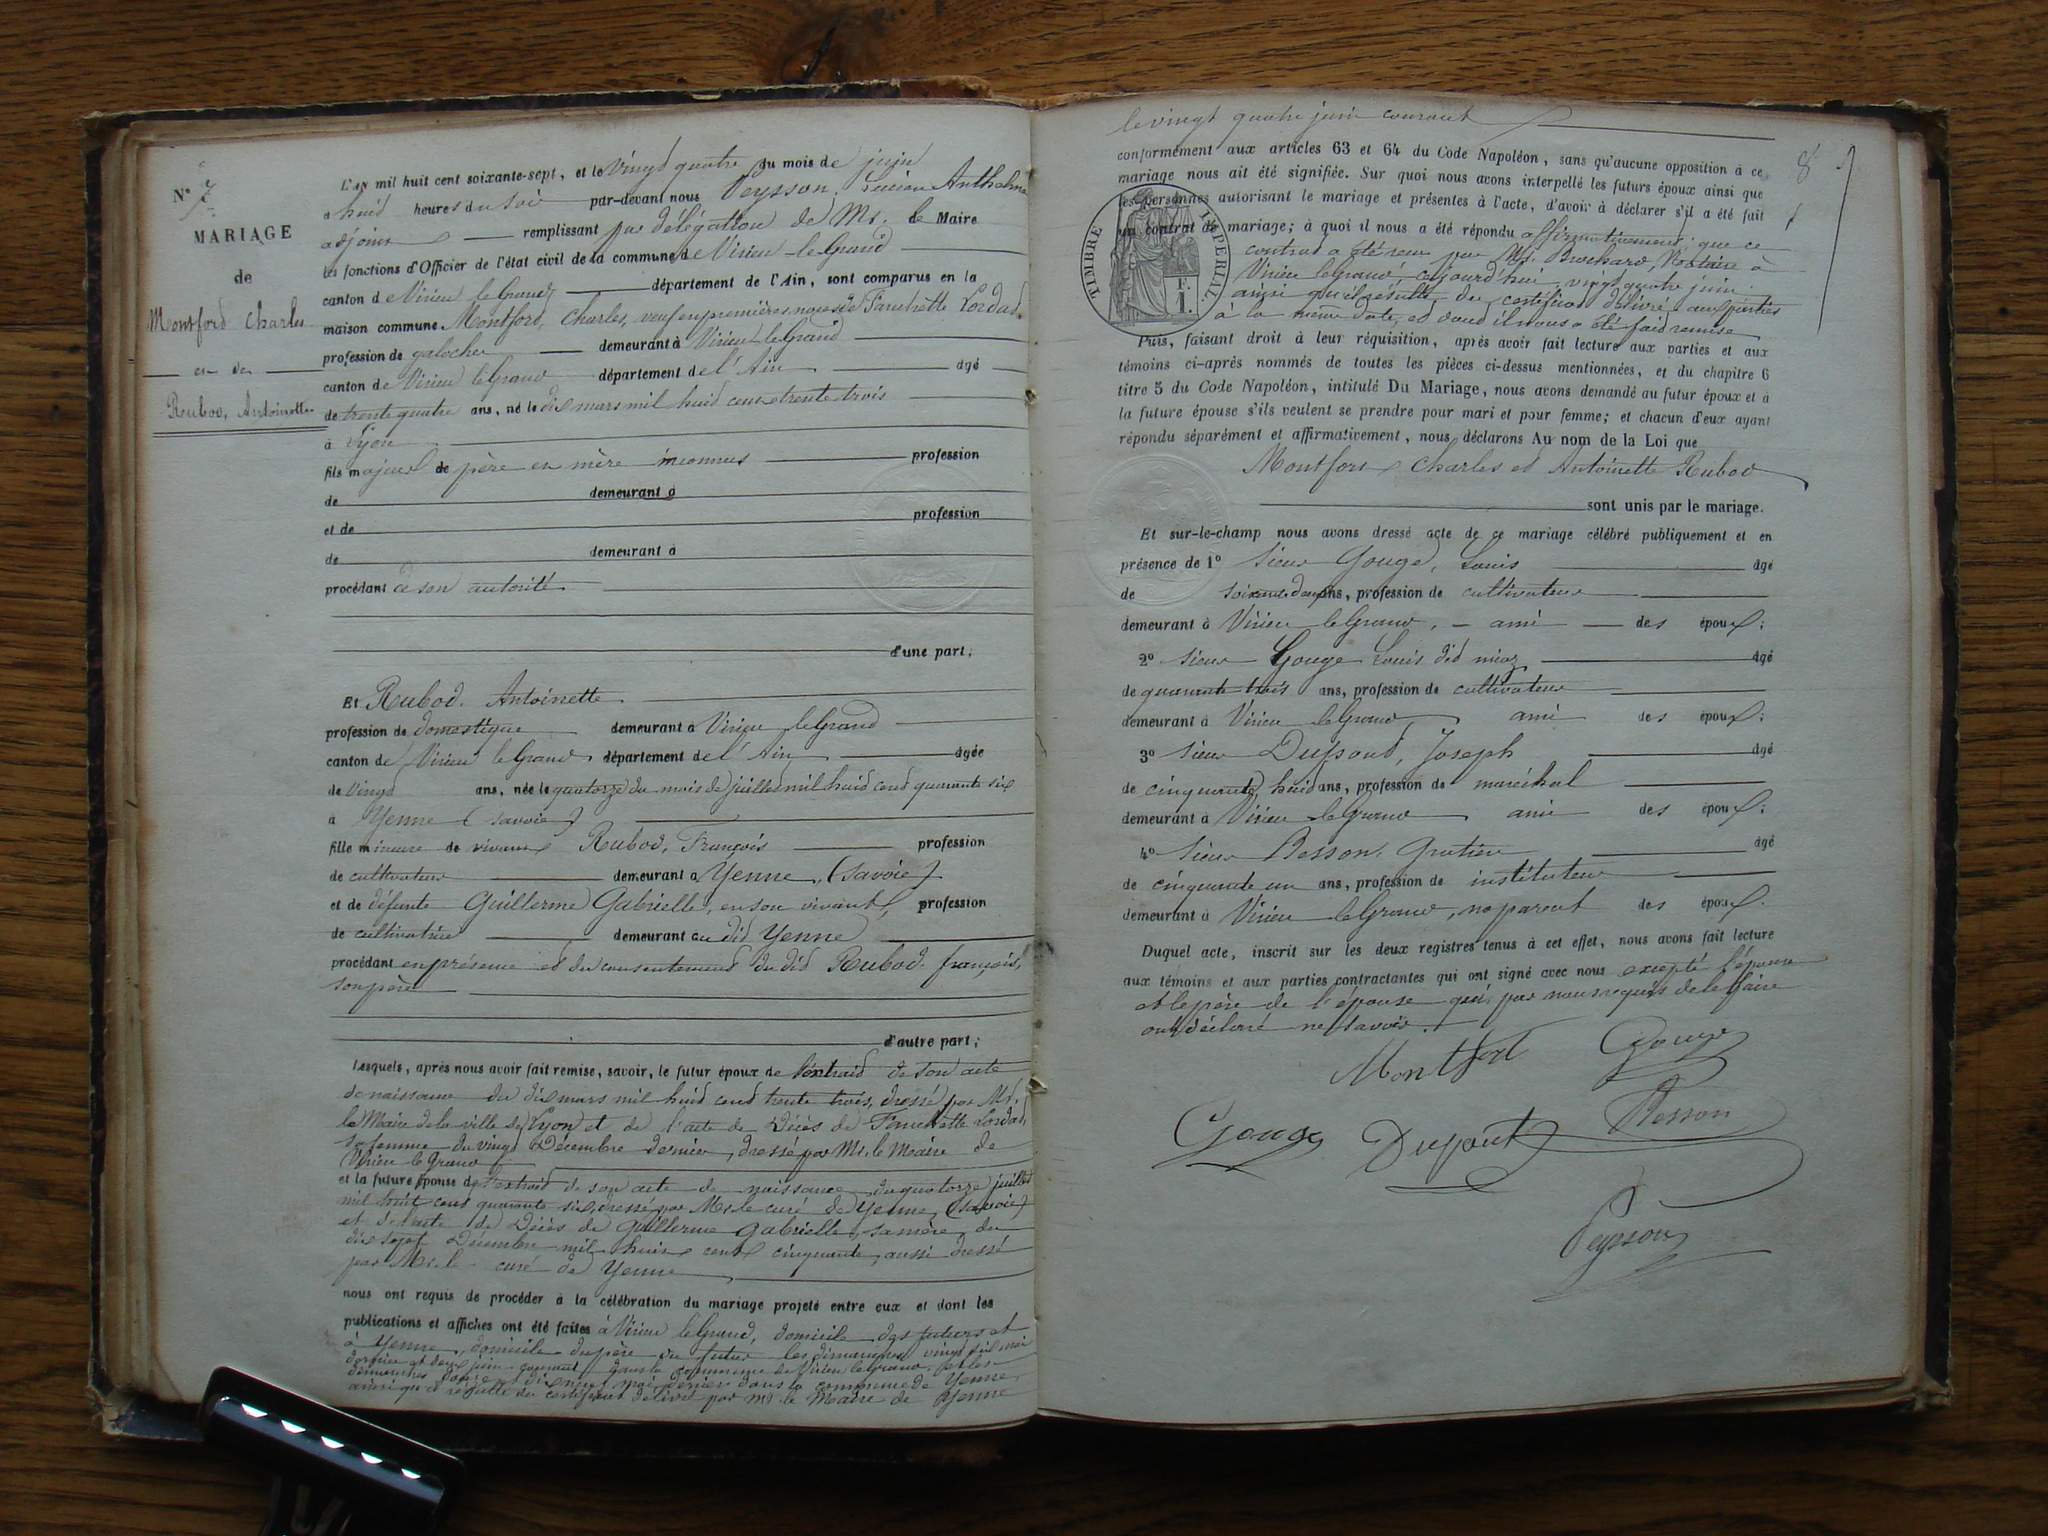 N° 7
MARIAGE
de
Montford Charles
et de
Rubod, Antoinette
L'an mil huit cent soixante-sept, et le vingt quatre du mois de juin
à huid heures du soir par-devant nous Peysson, Lucien Anthelme
adjoint remplissant par délégation de Mr. le Maire
les fonctions d'Officier de l'état civil de la commune de Virieu-le-Grand
canton de Virieu le Grand département de l'Ain, sont comparus en la
maison commune Montford, Charles, veuf en premières noces de Fanchette Lordad,
profession de galocher demeurant à Virieu le Grand
canton de Virieu le Grand département de l'Ain âgé
de trente quatre ans, né le dix mars mil huid cent trente trois
à Lyon
fils majeur de père et mère inconnus profession
de demeurant à
et de profession
de demeurant à
procédant de son autorité
d'une part;
Et Rubod, Antoinette
profession de domestique demeurant à Virieu le Grand
canton de Virieu le Grand département de l'Ain âgée
de vingt ans, née le quatorze du mois de juillet mil huid cend quarante six
à Yenne (savoie)
fille mineure de vivant Rubod, François profession
de cultivateur demeurant à Yenne, (savoie)
et de défunte Guillerme Gabrielle, en son vivant, profession
de cultivatrice demeurant au did Yenne
procédant en présence et du consentement du did Rubod, françois,
son père
d'autre part;
Lesquels, après nous avoir fait remise, savoir, le futur époux de l'extraid de son acte
de naissance du dix mars mil huid cend trente trois, dressé par Mr.
le Maire de la ville de Lyon et de l'acte de Décès de Fanchette Lordad,
sa femme du vingt Décembre dernier, dressé par Mr. le Maire de
Virieu le Grand
et la future épouse de l'extraid de son acte de naissance du quatorze juillet
mil huit cent quarante six, dressé par Mr. le curé de Yenne, (savoie)
et de l'acte de Décès de Guillerme Gabrielle, sa mère, du
dix sept Décembre mil huit cent cinquante, aussi dressé
par Mr. le curé de Yenne
nous ont requis de procéder à la célébration du mariage projeté entre eux et dont les
publications et affiches ont été faites à Virieu le Grand, domicile des futurs et
à Yenne, domicile du père du futur les dimanches vingt six mai
dernier et deux juin courant dans la commune de Virieu le Grand et les
dimanches douze et dix neuf mai dernier dans la commune de Yenne
ainsi qu'il résulte du certificat délivré par Mr le Maire de Yenne
le vingt quatre juin courant
8
conformément aux articles 63 et 64 du Code Napoléon, sans qu'aucune opposition à ce
mariage nous ait été signifiée. Sur quoi nous avons interpellé les futurs époux ainsi que
les personnes autorisant le mariage et présentes à l'acte, d'avoir à déclarer s'il a été fait
un contrat de mariage; à quoi il nous a été répondu affirmativement; que ce
contrat a été reçu par Mr. Brochard, Notaire à
Virieu le Grand aujourd'hui vingt quatre juin
ainsi qu'il résulte du certificat délivré aux parties
à la même date, et dont il nous a été faid remise
TIMBRE IMPERIAL.
F.
1.
Puis, faisant droit à leur réquisition, après avoir fait lecture aux parties et aux
témoins ci-après nommés de toutes les pièces ci-dessus mentionnées, et du chapitre 6
titre 5 du Code Napoléon, intitulé Du Mariage, nous avons demandé au futur époux et à
la future épouse s'ils veulent se prendre pour mari et pour femme; et chacun d'eux ayant
répondu séparément et affirmativement, nous déclarons Au nom de la Loi que
Montfort Charles et Antoinette Rubod
sont unis par le mariage.
Et sur-le-champ nous avons dressé acte de ce mariage célébré publiquement et en
présence de 1° sieur Gouge, Louis âgé
de ans, profession de cultivateur
demeurant à Virieu le Grand, ami des époux;
2° sieur Gouge Louis did âgé
de quarante trois ans, profession de cultivateur
demeurant à Virieu le Grand, ami des époux;
3° sieur Dupont, Joseph âgé
de cinquante huid ans, profession de maréchal
demeurant à Virieu le Grand ami des époux;
4° sieur Besson, Gratien âgé
de cinquante un ans, profession de instituteur
demeurant à Virieu le Grand, no parent des époux.
Duquel acte, inscrit sur les deux registres tenus à cet effet, nous avons fait lecture
aux témoins et aux parties contractantes qui ont signé avec nous excepté l'épouse
et le père de l'épouse qui, par nous requis de le faire
ont déclaré ne savoir.
Montfort Gouge
Gouge Dupont Besson
Peysson